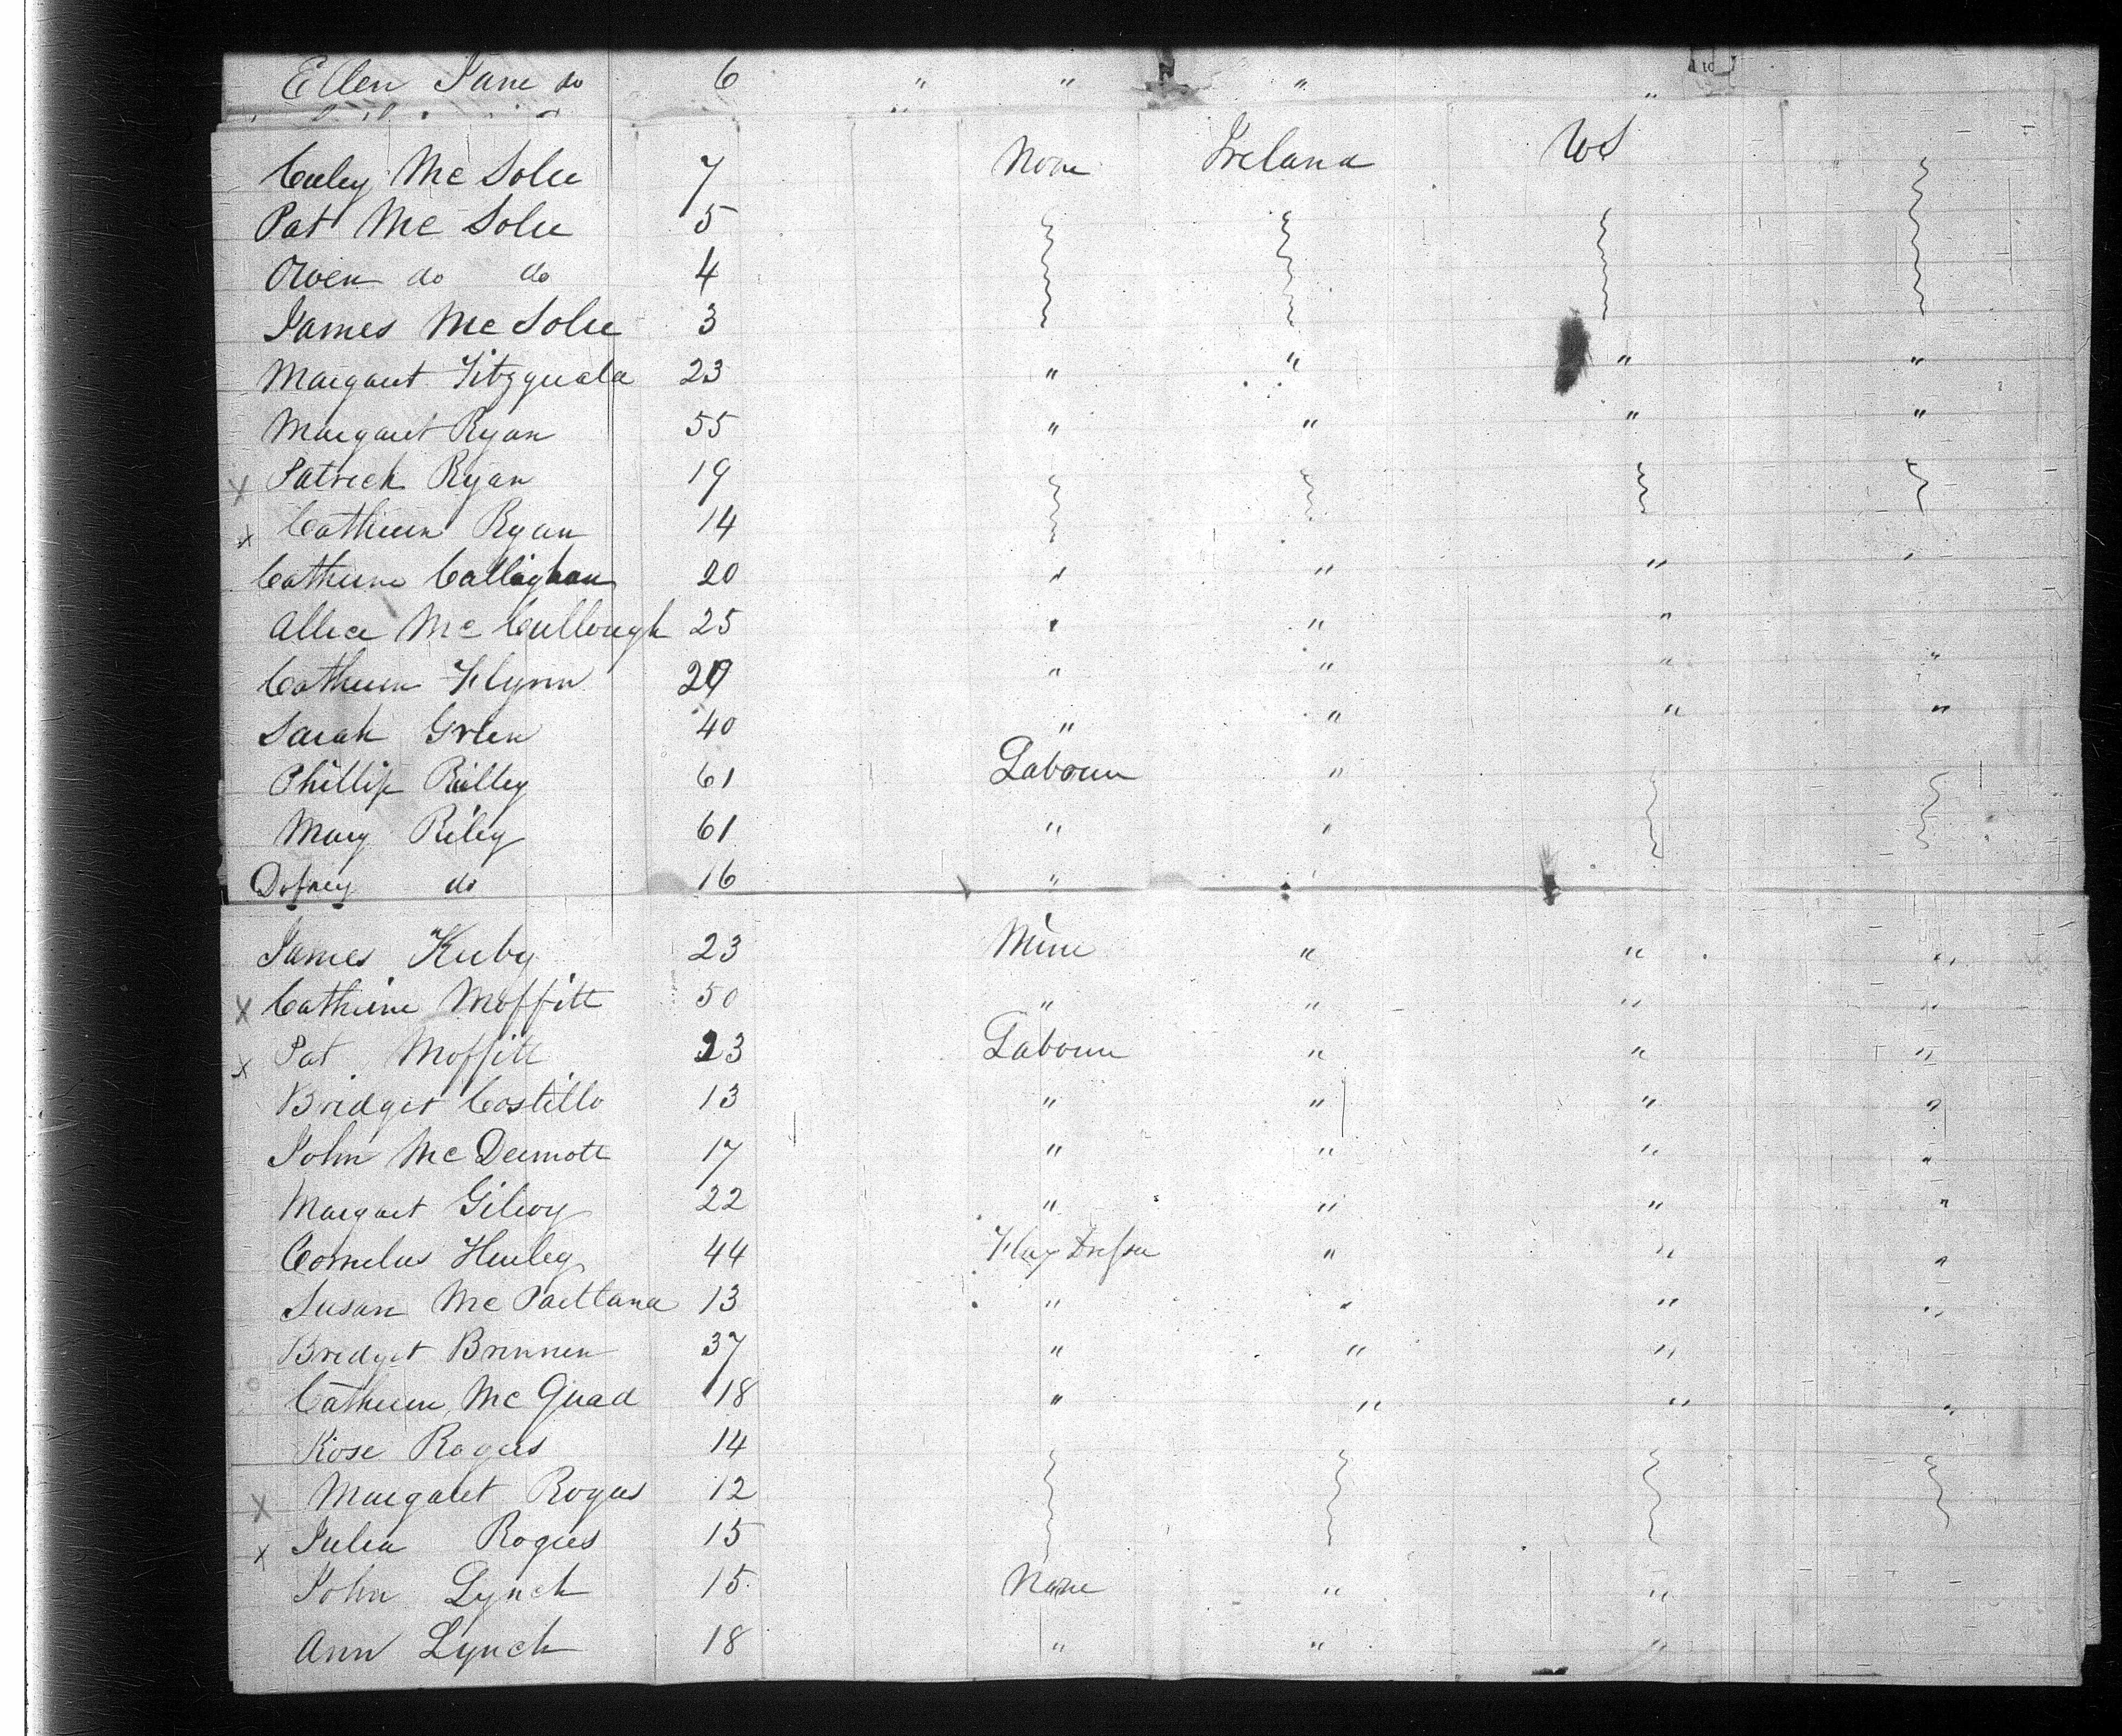 Ellen Jane do 6 " " " "
Culey Mc Solee 7 None Ireland US
Pat Mc Solee 5
Owen do do 4
James Mc Solee 3
Margaret Fitzgerald 23 " " " "
Margaret Ryan 55 " " " "
X Patrick Ryan 19
x Catherin Ryan 14
Catherine Callaghan 20 " " " "
Allice Mc Cullough 25 " " "
Catherin Flynn 29 " " " "
Sarah Green 40 " " " "
Phillip Reilley 61 Labourer "
Mary Riley 61 " "
do 16 "
James Kirby 23 " " "
X Catherine Moffitt 50 " " " "
x Pat Moffitt 23 Labourer " " "
Bridget Costillo 13 " " " "
John Mc Dermott 17 " " " "
Margaret Gilroy 22 " " " "
Cornelus Hurley 44 Flax Dresser " " "
Susan Mc Partland 13 " " " "
Bridget Brennen 37 " " "
Catherine Mc Quad 18 " " " "
Rose Rogers 14
X Margaret Rogers 12
x Julia Rogers 15
John Lynch 15 None " "
Ann Lynch 18 " " "